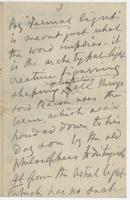 3
By "Formal light"
is meant just what
the word implies - it
is the archetypal light
creative figuring
shaping all things
Lord Bacon uses the
term, which was
handed down to his
day son by the old
philosophers to distinguish
it from the Astral light
which has no such